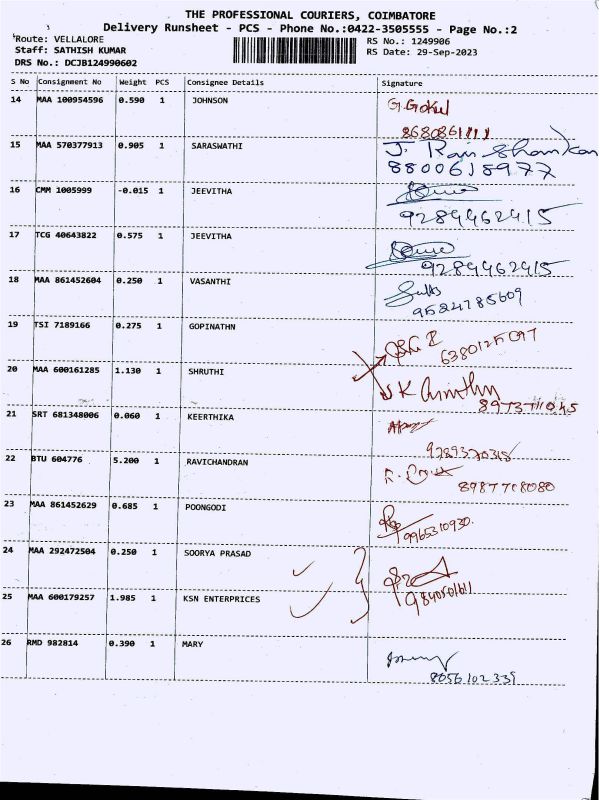 THE PROFESSIONAL COURIERS, COIMBATORE
Delivery Runsheet - PCS - Phone No.:0422-3505555 - Page No.:2
Route: VELLALORE
RS No.: 1249906
Staff: SATHISH KUMAR
RS Date: 29-Sep-2023
DRS No.: DCJB124990602
S No Consignment No Weight PCS Consignee Details Signature
14 MAA 100954596 0.590 1 JOHNSON G.Gokul
8680861111
15 MAA 570377913 0.905 1 SARASWATHI J. Raju Shankar
8800618977
16 CMM 1005999 -0.015 1 JEEVITHA
9289462415
17 TCG 40643822 0.575 1 JEEVITHA
9289462415
18 MAA 861452604 0.250 1 VASANTHI
9524785609
19 TSI 7189166 0.275 1 GOPINATHN
20 MAA 600161285 1.130 1 SHRUTHI
21 SRT 681348006 0.060 1 KEERTHIKA
9789370315
22 BTU 604776 5.200 1 RAVICHANDRAN
8987708080
23 MAA 861452629 0.685 1 POONGODI
9965310930
24 MAA 292472504 0.250 1 SOORYA PRASAD
25 MAA 600179257 1.985 1 KSN ENTERPRICES
26 RMD 982814 0.390 1 MARY
8056102339